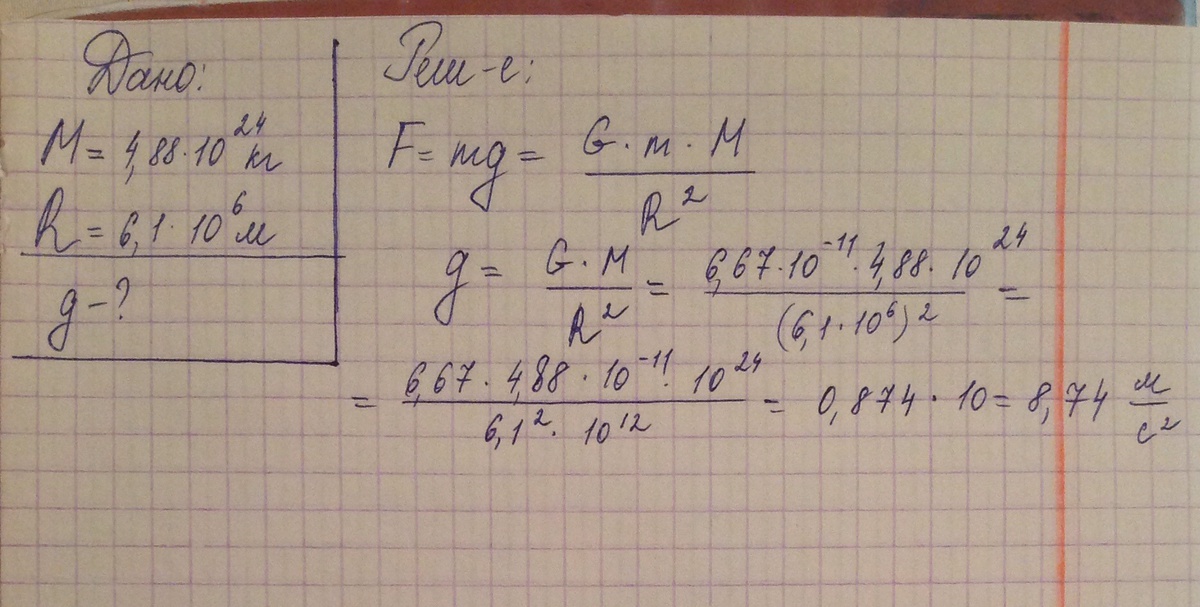 Дано:
M = 4,88·10²⁴ кг
R = 6,1·10⁶ м
g – ?
Реш-е:
F = mg = G·m·M / R²
g = G·M / R² = 6,67·10⁻¹¹·4,88·10²⁴ / (6,1·10⁶)² =
= 6,67·4,88·10⁻¹¹·10²⁴ / 6,1²·10¹² = 0,874·10 = 8,74 м/с²